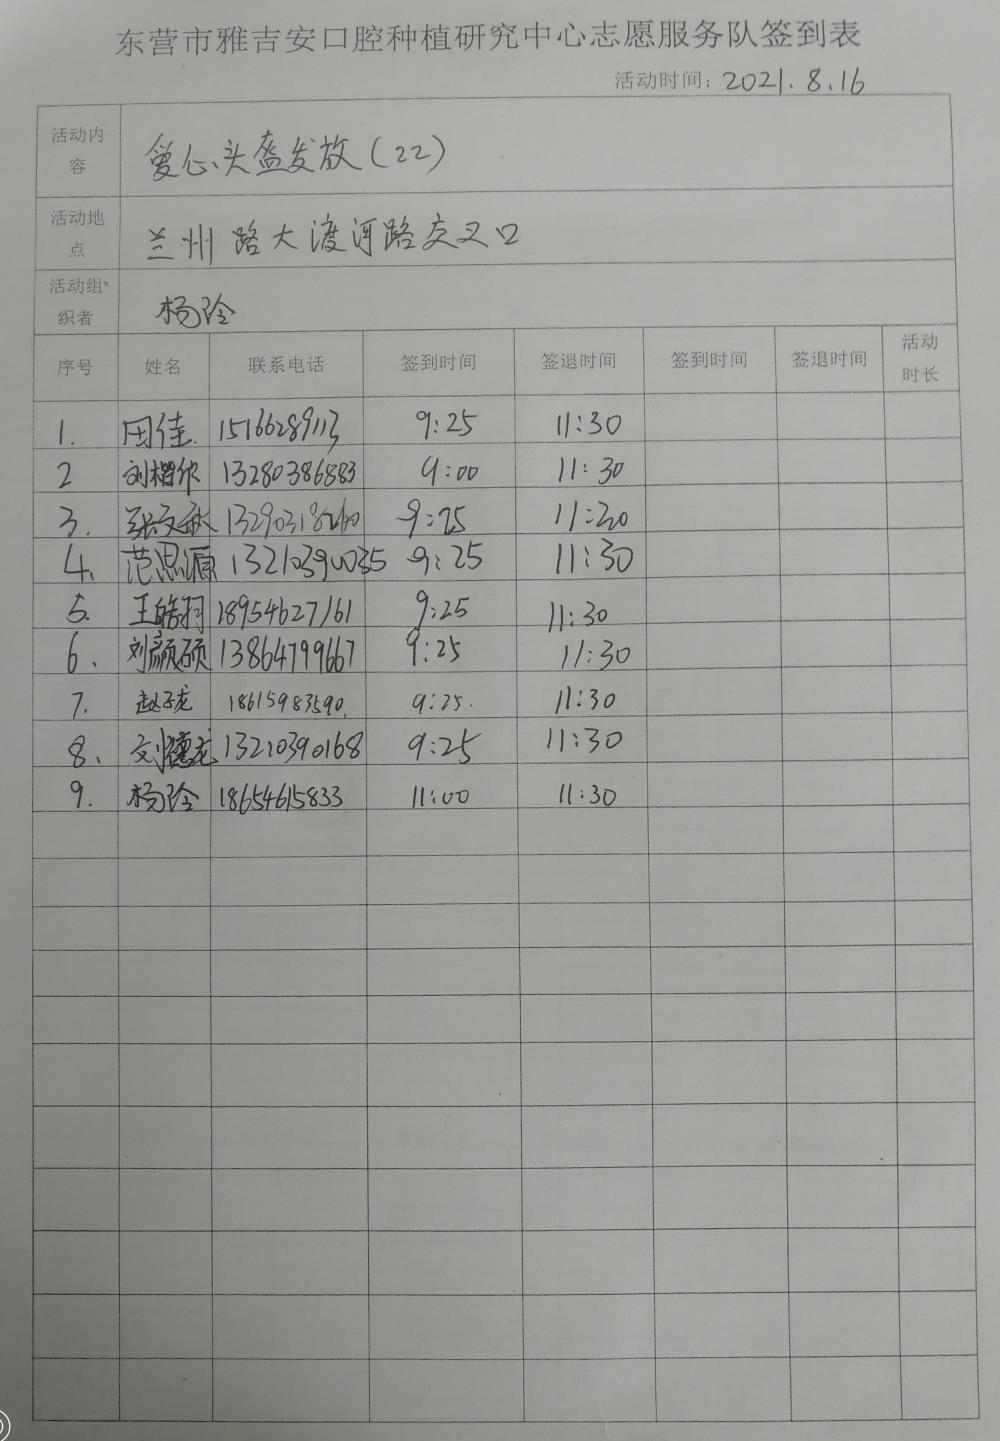 东营市雅吉安口腔种植研究中心志愿服务队签到表
活动时间：2021.8.16
活动内容 爱心头盔发放（22）
活动地点 兰州路大渡河路交叉口
活动组织者 杨玲
序号 姓名 联系电话 签到时间 签退时间 签到时间 签退时间 活动时长
1. 田佳 15166289113 9:25 11:30
2 刘楷欣 13280386883 9:00 11:30
3. 张文敏 9:25 11:30
4. 范思源 13210390035 9:25 11:30
5. 王皓 18954627161 9:25 11:30
6. 刘颜硕 13864799667 9:25 11:30
7. 赵子龙 18615983590 9:25. 11:30
8. 刘德龙 13210390168 9:25 11:30
9. 杨玲 18654615833 11:00 11:30